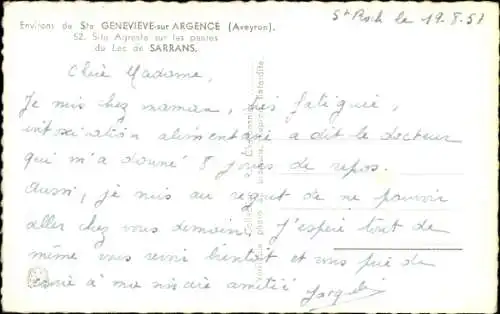 Environs de Ste GENEVIEVE-sur ARGENCE (Aveyron).
52. Site Agreste sur les pentes
du Lac de SARRANS.
St Roch le 19.8.57
Chère Madame,
Je suis chez maman, très fatiguée,
intoxication alimentaire a dit le docteur
qui m'a donné 8 jours de repos.
Aussi, je suis au regret de ne pouvoir
aller chez vous demain. J'espère tout de
même vous revoir bientôt et vous prie de
croire à ma sincère amitié